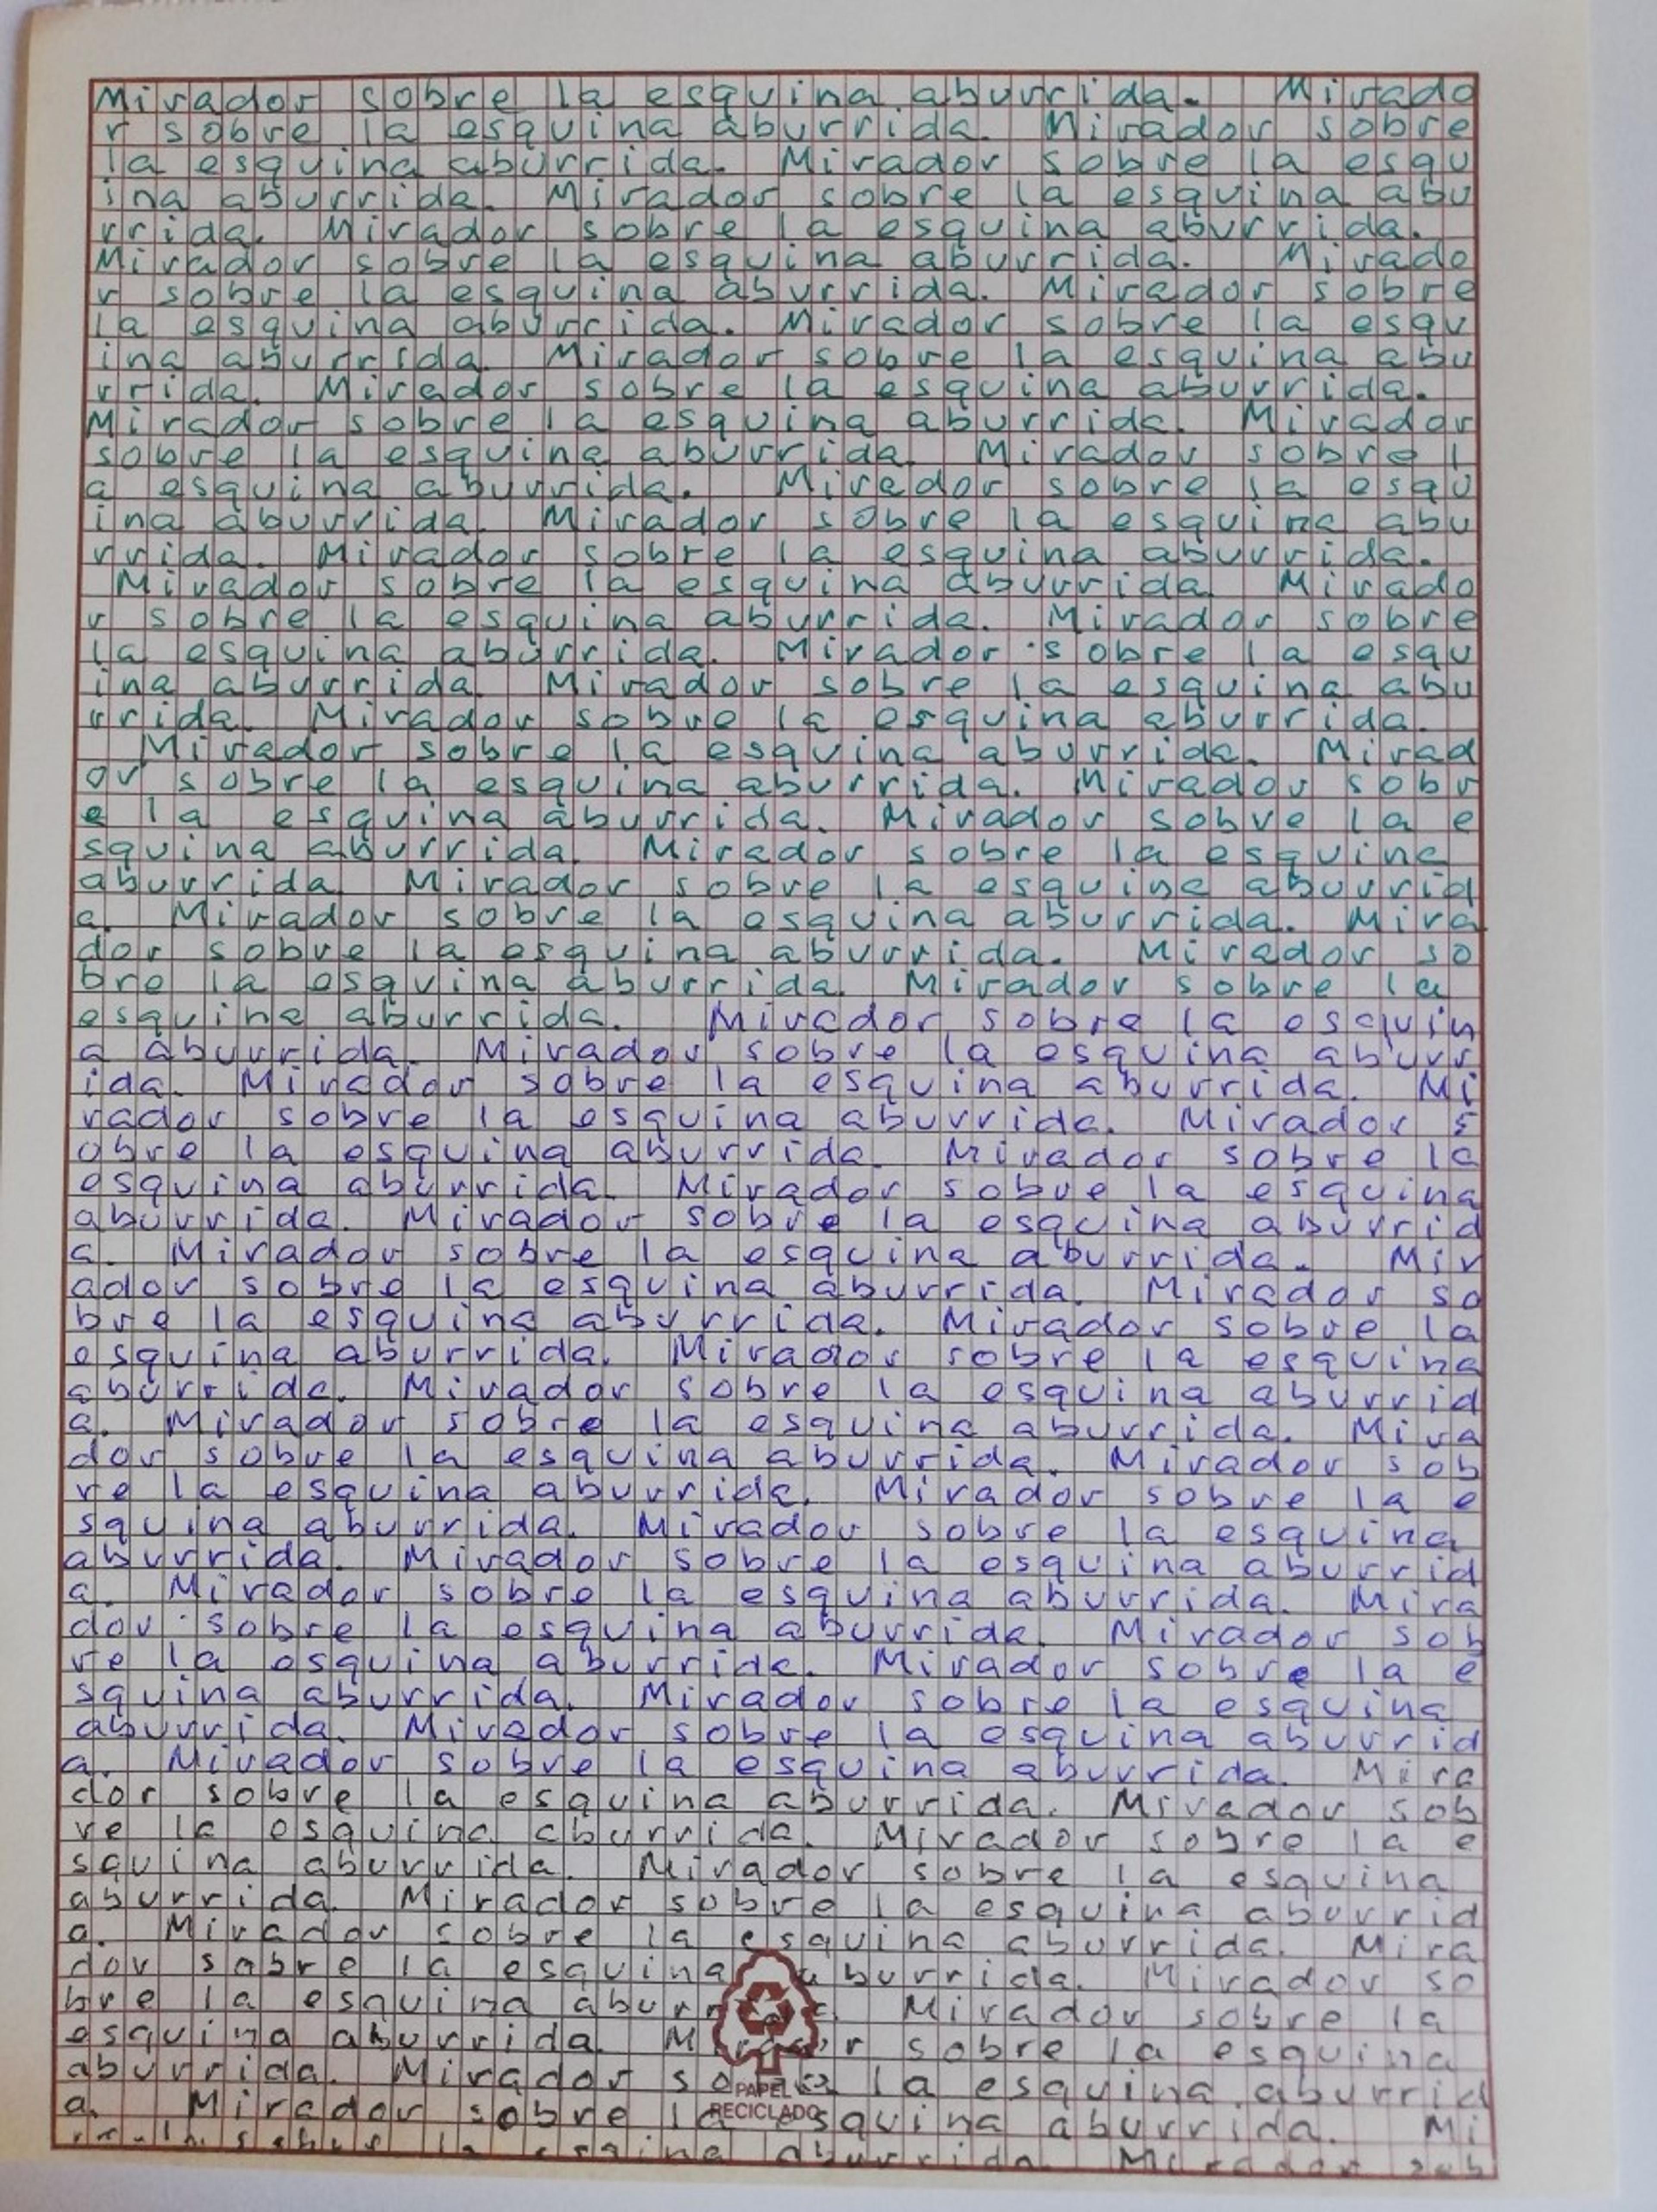 Mirador sobre la esquina aburrida. Mirado
r sobre la esquina aburrida. Mirador sobre
la esquina aburrida. Mirador sobre la esqu
ina aburrida. Mirador sobre la esquina abu
rrida. Mirador sobre la esquina aburrida.
Mirador sobre la esquina aburrida. Mirado
r sobre la esquina aburrida. Mirador sobre
la esquina aburrida. Mirador sobre la esqu
ina aburrida. Mirador sobre la esquina abu
rrida. Mirador sobre la esquina aburrida.
Mirador sobre la esquina aburrida. Mirador
sobre la esquina aburrida. Mirador sobre l
a esquina aburrida. Mirador sobre la esqu
ina aburrida. Mirador sobre la esquina abu
rrida. Mirador sobre la esquina aburrida.
Mirador sobre la esquina aburrida. Mirado
r sobre la esquina aburrida. Mirador sobre
la esquina aburrida. Mirador sobre la esqu
ina aburrida. Mirador sobre la esquina abu
rrida. Mirador sobre la esquina aburrida.
Mirador sobre la esquina aburrida. Mirad
or sobre la esquina aburrida. Mirador sobr
e la esquina aburrida. Mirador sobre la e
squina aburrida. Mirador sobre la esquina
aburrida. Mirador sobre la esquina aburrid
a. Mirador sobre la esquina aburrida. Mira
dor sobre la esquina aburrida. Mirador so
bre la esquina aburrida. Mirador sobre la
esquina aburrida. Mirador sobre la esquin
a aburrida. Mirador sobre la esquina aburr
ida. Mirador sobre la esquina aburrida. Mi
rador sobre la esquina aburrida. Mirador s
obre la esquina aburrida. Mirador sobre la
esquina aburrida. Mirador sobre la esquina
aburrida. Mirador sobre la esquina aburrid
a. Mirador sobre la esquina aburrida. Mir
ador sobre la esquina aburrida. Mirador so
bre la esquina aburrida. Mirador sobre la
esquina aburrida. Mirador sobre la esquina
aburrida. Mirador sobre la esquina aburrid
a. Mirador sobre la esquina aburrida. Mira
dor sobre la esquina aburrida. Mirador sob
re la esquina aburrida. Mirador sobre la e
squina aburrida. Mirador sobre la esquina
aburrida. Mirador sobre la esquina aburrid
a. Mirador sobre la esquina aburrida. Mira
dor sobre la esquina aburrida. Mirador sob
re la esquina aburrida. Mirador sobre la e
squina aburrida. Mirador sobre la esquina
aburrida. Mirador sobre la esquina aburrid
a. Mirador sobre la esquina aburrida. Mira
dor sobre la esquina aburrida. Mirador sob
re la esquina aburrida. Mirador sobre la e
squina aburrida. Mirador sobre la esquina
aburrida. Mirador sobre la esquina aburrid
a. Mirador sobre la esquina aburrida. Mira
dor sobre la esquina aburrida. Mirador so
bre la esquina Mirador sobre la
esquina aburrida. sobre la esquina
aburrida. Mirador la esquina aburrid
a. Mirador sobre la esquina aburrida. Mi
la aburrida. Mirador sob
PAPEL
RECICLADO